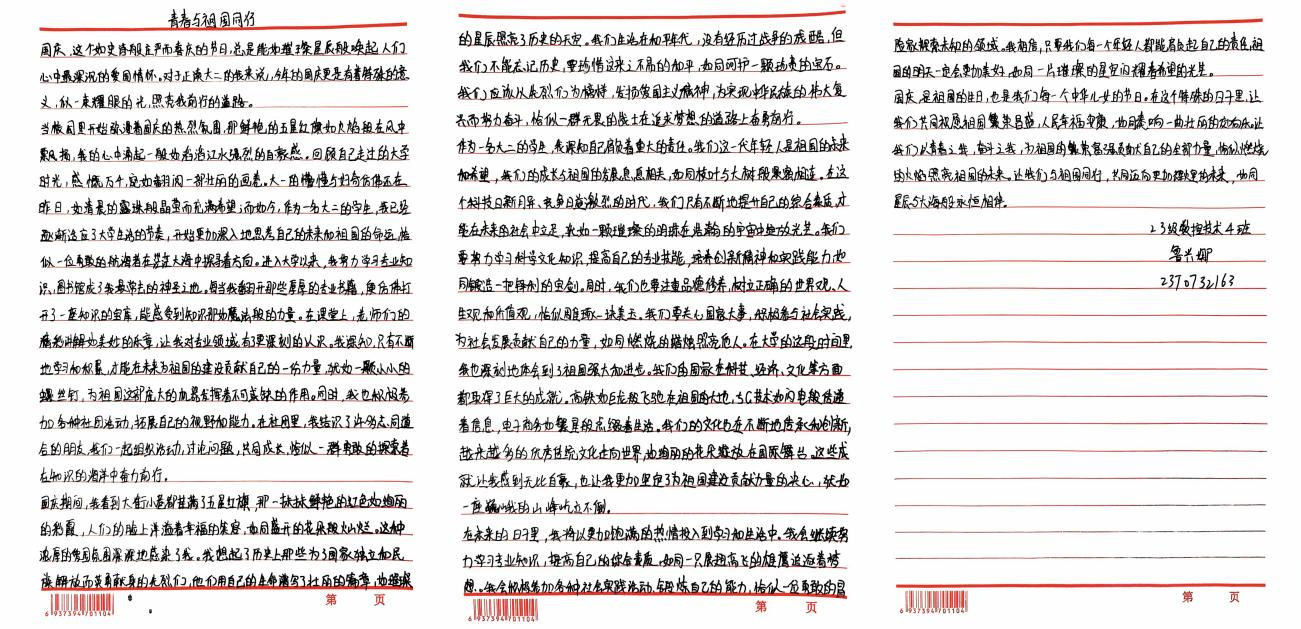 青春与祖国同行
国庆，这个如史诗般庄严而喜庆的节日，总是能如璀璨星辰般唤起人们
心中最深沉的爱国情怀。对于正读大二的我来说，今年的国庆更是有着特殊的意
义，似一束耀眼的光，照亮我前行的道路。
当校园里开始弥漫着国庆的热烈氛围，那鲜艳的五星红旗如火焰般在风中
飘扬，我的心中涌起一股如滔滔江水强烈的自豪感。回顾自己走过的大学
时光，感慨万千，宛如翻阅一部壮丽的画卷。大一的懵懂与好奇仿佛还在
昨日，如清晨的露珠般晶莹而充满希望；而如今，作为一名大二的学生，我已经
逐渐适应了大学生活的节奏，开始更加深入地思考自己的未来和祖国的命运，恰
似一位勇敢的航海者在茫茫大海中探寻着方向。进入大学以来，我努力学习专业知
识，图书馆成了我最常去的神圣之地。每当我翻开那些厚厚的专业书籍，便仿佛打
开了一座知识的宝库，能感受到知识那如魔法般的力量。在课堂上，老师们的
精彩讲解如美妙的乐章，让我对专业领域有了更深刻的认识。我深知，只有不断
地学习和积累，才能在未来为祖国的建设贡献自己的一份力量，就如一颗小小的
螺丝钉，为祖国这部庞大的机器发挥着不可或缺的作用。同时，我也积极参
加各种社团活动，拓展自己的视野和能力。在社团里，我结识了许多志同道
合的朋友，我们一起组织活动，讨论问题，共同成长，恰似一群勇敢的探索者
在知识的海洋中奋力前行。
国庆期间，我看到大街小巷都挂满了五星红旗，那一抹抹鲜艳的红色如绚丽
的彩霞，人们的脸上洋溢着幸福的笑容，如同盛开的花朵般灿烂。这种
浓厚的爱国氛围深深地感染了我。我想起了历史上那些为了国家独立和民
族解放而英勇献身的先烈们，他们用自己的生命谱写了壮丽的篇章，如璀璨
第 页
6 937394 701104
的星辰照亮了历史的天空。我们生活在和平年代，没有经历过战争的残酷，但
我们不能忘记历史，要珍惜这来之不易的和平，如同呵护一颗珍贵的宝石。
我们应该以先烈们为榜样，发扬爱国主义精神，为实现中华民族的伟大复
兴而努力奋斗，恰似一群无畏的战士在追求梦想的道路上奋勇前行。
作为一名大二的学生，我深知自己肩负着重大的责任。我们这一代年轻人是祖国的未来
和希望，我们的成长与祖国的发展息息相关，如同枝叶与大树般紧密相连。在这
个科技日新月异、竞争日益激烈的时代，我们只有不断地提升自己的综合素质，才
能在未来的社会中立足，犹如一颗璀璨的明珠在浩瀚的宇宙中绽放光芒。我们
要努力学习科学文化知识，提高自己的专业技能，培养创新精神和实践能力，如
同锻造一把锋利的宝剑。同时，我们也要注重品德修养，树立正确的世界观、人
生观和价值观，恰似雕琢一块美玉。我们要关心国家大事，积极参与社会实践，
为社会发展贡献自己的力量，如同燃烧的蜡烛照亮他人。在大学的这段时间里，
我也深刻地体会到了祖国强大和进步。我们的国家在科技、经济、文化等方面
都取得了巨大的成就。高铁如巨龙般飞驰在祖国的大地，5G技术如闪电般传递
着信息，电子商务如繁星般点缀着生活。我们的文化也在不断地传承和创新，
越来越多的优秀传统文化走向世界，如绚丽的花朵绽放在国际舞台。这些成
就让我感到无比自豪，也让我更加坚定了为祖国建设贡献力量的决心，犹如
一座巍峨的山峰屹立不倒。
在未来的日子里，我将以更加饱满的热情投入到学习和生活中。我会继续努
力学习专业知识，提高自己的综合素质，如同一只展翅高飞的雄鹰追逐着梦
想。我会积极参加各种社会实践活动，锻炼自己的能力，恰似一位勇敢的冒
第 页
6 937394 701104
险家探索未知的领域。我相信，只要我们每一个年轻人都能肩负起自己的责任，祖
国的明天一定会更加美好，如同一片璀璨的星空闪耀着希望的光芒。
国庆，是祖国的生日，也是我们每一个中华儿女的节日。在这个特殊的日子里，让
我们共同祝愿祖国繁荣昌盛，人民幸福安康，如同奏响一曲壮丽的交响乐。让
我们以青春之我，奋斗之我，为祖国的繁荣富强贡献自己的全部力量，恰似燃烧
的火焰照亮祖国的未来。让我们与祖国同行，共同迈向更加辉煌的未来，如同
星辰与大海般永恒相伴。
23级数控技术4班
鲁兴娜
2370732163
第 页
6 937394 701104